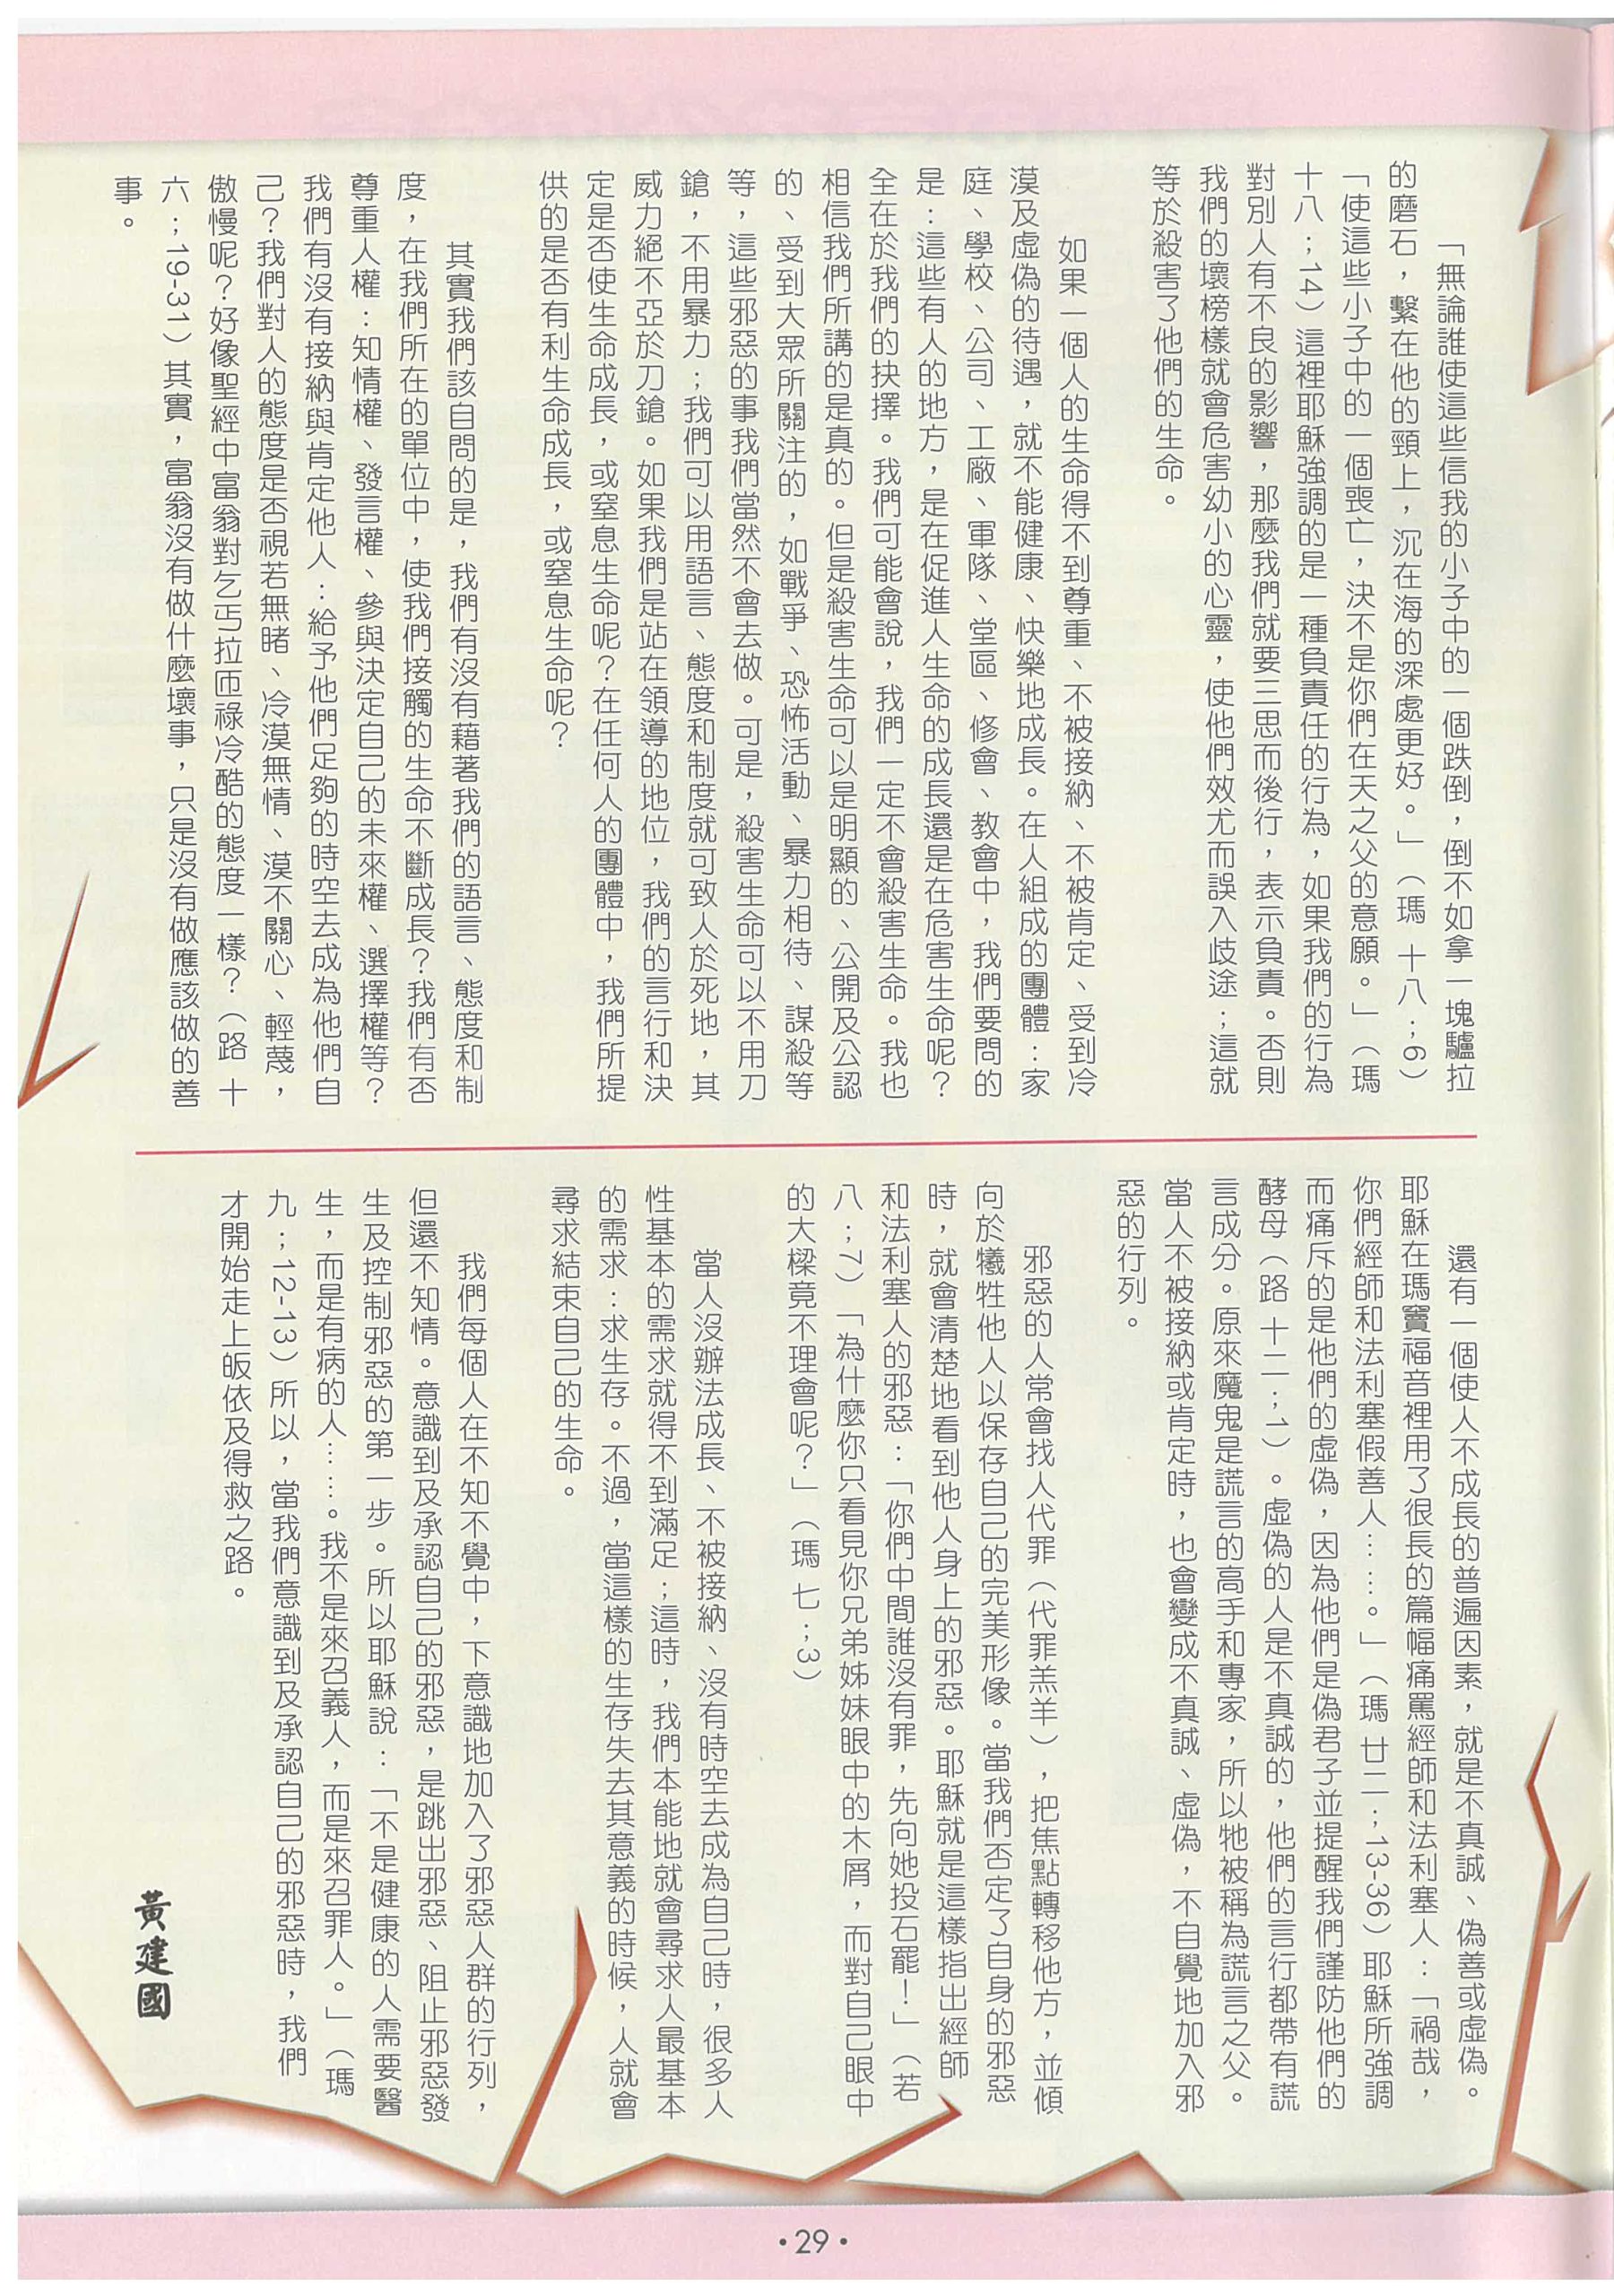 「無論誰使這些信我的小子中的一個跌倒，倒不如拿一塊驢拉
的磨石，繫在他的頸上，沉在海的深處更好。」（瑪 十八；6）
「使這些小子中的一個喪亡，決不是你們在天之父的意願。」（瑪
十八；14）這裡耶穌強調的是一種負責任的行為，如果我們的行為
對別人有不良的影響，那麼我們就要三思而後行，表示負責。否則
我們的壞榜樣就會危害幼小的心靈，使他們效尤而誤入歧途；這就
等於殺害了他們的生命。
如果一個人的生命得不到尊重、不被接納、不被肯定、受到冷
漠及虛偽的待遇，就不能健康、快樂地成長。在人組成的團體：家
庭、學校、公司、工廠、軍隊、堂區、修會、教會中，我們要問的
是：這些有人的地方，是在促進人生命的成長還是在危害生命呢？
全在於我們的抉擇。我們可能會說，我們一定不會殺害生命。我也
相信我們所講的是真的。但是殺害生命可以是明顯的、公開及公認
的、受到大眾所關注的，如戰爭、恐怖活動、暴力相待、謀殺等
等，這些邪惡的事我們當然不會去做。可是，殺害生命可以不用刀
鎗，不用暴力；我們可以用語言、態度和制度就可致人於死地，其
威力絕不亞於刀鎗。如果我們是站在領導的地位，我們的言行和決
定是否使生命成長，或窒息生命呢？在任何人的團體中，我們所提
供的是否有利生命成長，或窒息生命呢？
其實我們該自問的是，我們有沒有藉著我們的語言、態度和制
度，在我們所在的單位中，使我們接觸的生命不斷成長？我們有否
尊重人權：知情權、發言權、參與決定自己的未來權、選擇權等？
我們有沒有接納與肯定他人：給予他們足夠的時空去成為他們自
己？我們對人的態度是否視若無睹、冷漠無情、漠不關心、輕蔑，
傲慢呢？好像聖經中富翁對乞丐拉匝祿冷酷的態度一樣？（路 十
六；19-31）其實，富翁沒有做什麼壞事，只是沒有做應該做的善
事。
還有一個使人不成長的普遍因素，就是不真誠、偽善或虛偽。
耶穌在瑪竇福音裡用了很長的篇幅痛罵經師和法利塞人：「禍哉，
你們經師和法利塞假善人……。」（瑪 廿二；13-36）耶穌所強調
而痛斥的是他們的虛偽，因為他們是偽君子並提醒我們謹防他們的
酵母（路 十二；1）。虛偽的人是不真誠的，他們的言行都帶有謊
言成分。原來魔鬼是謊言的高手和專家，所以牠被稱為謊言之父。
當人不被接納或肯定時，也會變成不真誠、虛偽，不自覺地加入邪
惡的行列。
邪惡的人常會找人代罪（代罪羔羊），把焦點轉移他方，並傾
向於犧牲他人以保存自己的完美形像。當我們否定了自身的邪惡
時，就會清楚地看到他人身上的邪惡。耶穌就是這樣指出經師
和法利塞人的邪惡：「你們中間誰沒有罪，先向她投石罷！」（若
八；7）「為什麼你只看見你兄弟姊妹眼中的木屑，而對自己眼中
的大樑竟不理會呢？」（瑪 七；3）
當人沒辦法成長、不被接納、沒有時空去成為自己時，很多人
性基本的需求就得不到滿足；這時，我們本能地就會尋求人最基本
的需求：求生存。不過，當這樣的生存失去其意義的時候，人就會
尋求結束自己的生命。
我們每個人在不知不覺中，下意識地加入了邪惡人群的行列，
但還不知情。意識到及承認自己的邪惡，是跳出邪惡、阻止邪惡發
生及控制邪惡的第一步。所以耶穌說：「不是健康的人需要醫
生，而是有病的人……。我不是來召義人，而是來召罪人。」（瑪
九；12-13）所以，當我們意識到及承認自己的邪惡時，我們
才開始走上皈依及得救之路。
黃建國
·29·